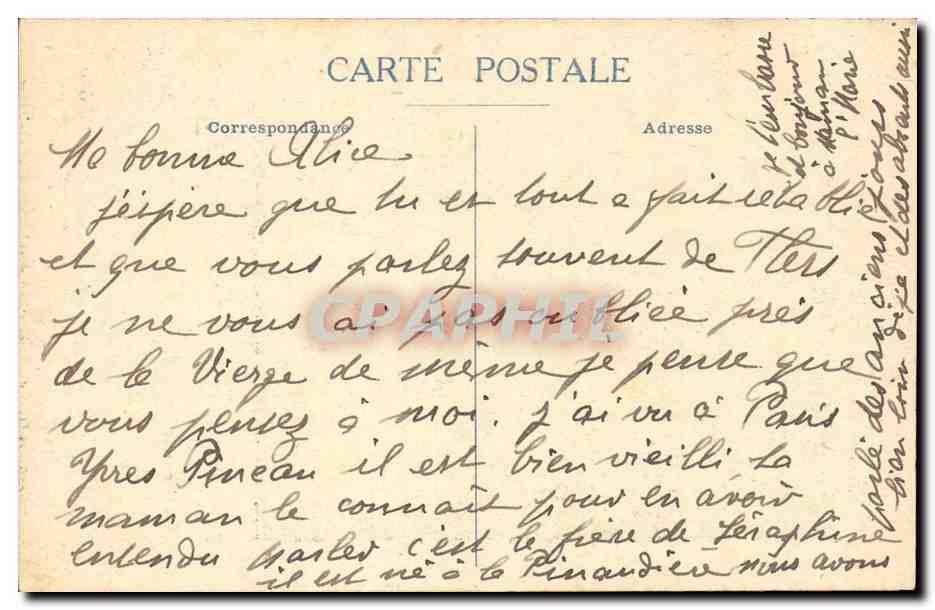 CARTE POSTALE
Correspondance
Adresse
Ma bonne Alice
j'espère que tu est tout a fait rétablie
et que vous parlez souvent de Flers
je ne vous ai pas oubliée près
de la Vierge de même je pense que
vous pensez à moi. j'ai vu à Paris
Yves Pineau il est bien vieilli ta
maman le connait pour en avoir
entendu parler c'est le frère de Séraphine
il est né à la Pinaudière nous avons
parlé des anciens jours
bien loin déjà et des absents aussi
je t'embrasse
et bonjour
à maman
Marie
CPAPHIL